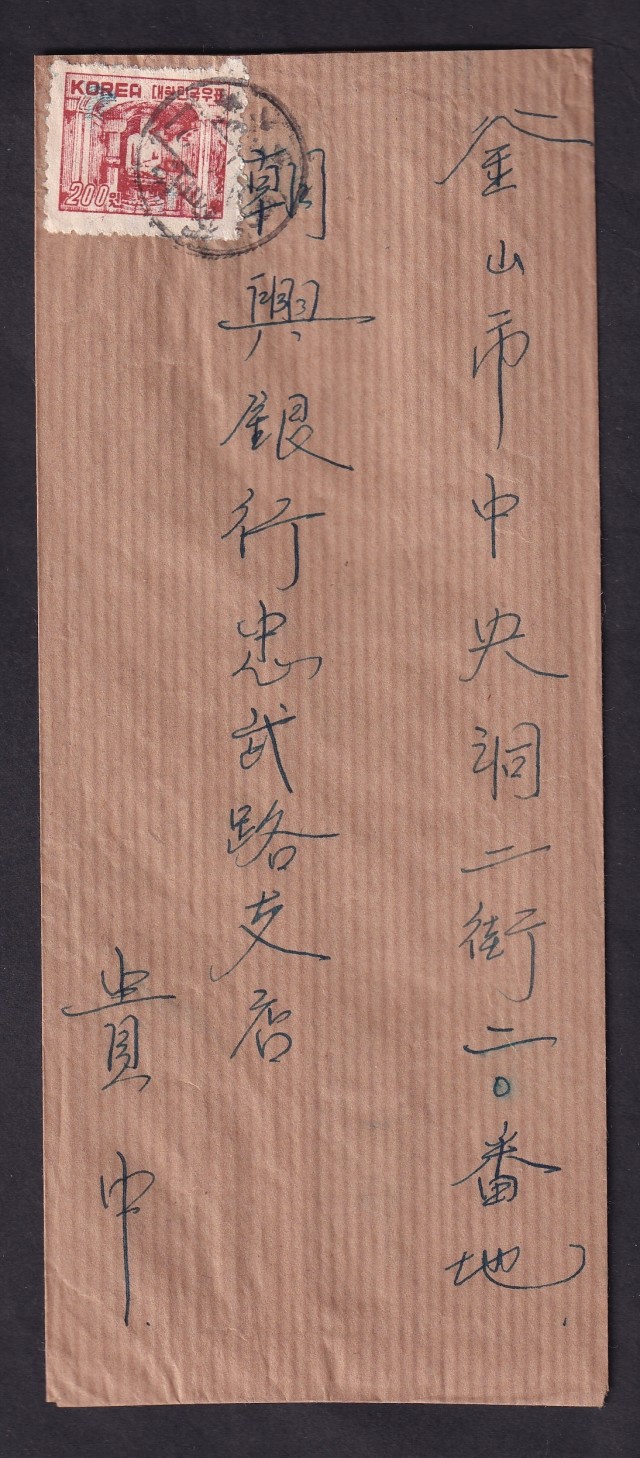 KOREA 대한민국우표
200원
釜山市中央洞二街二〇番地
朝興銀行忠武路支店
貴中